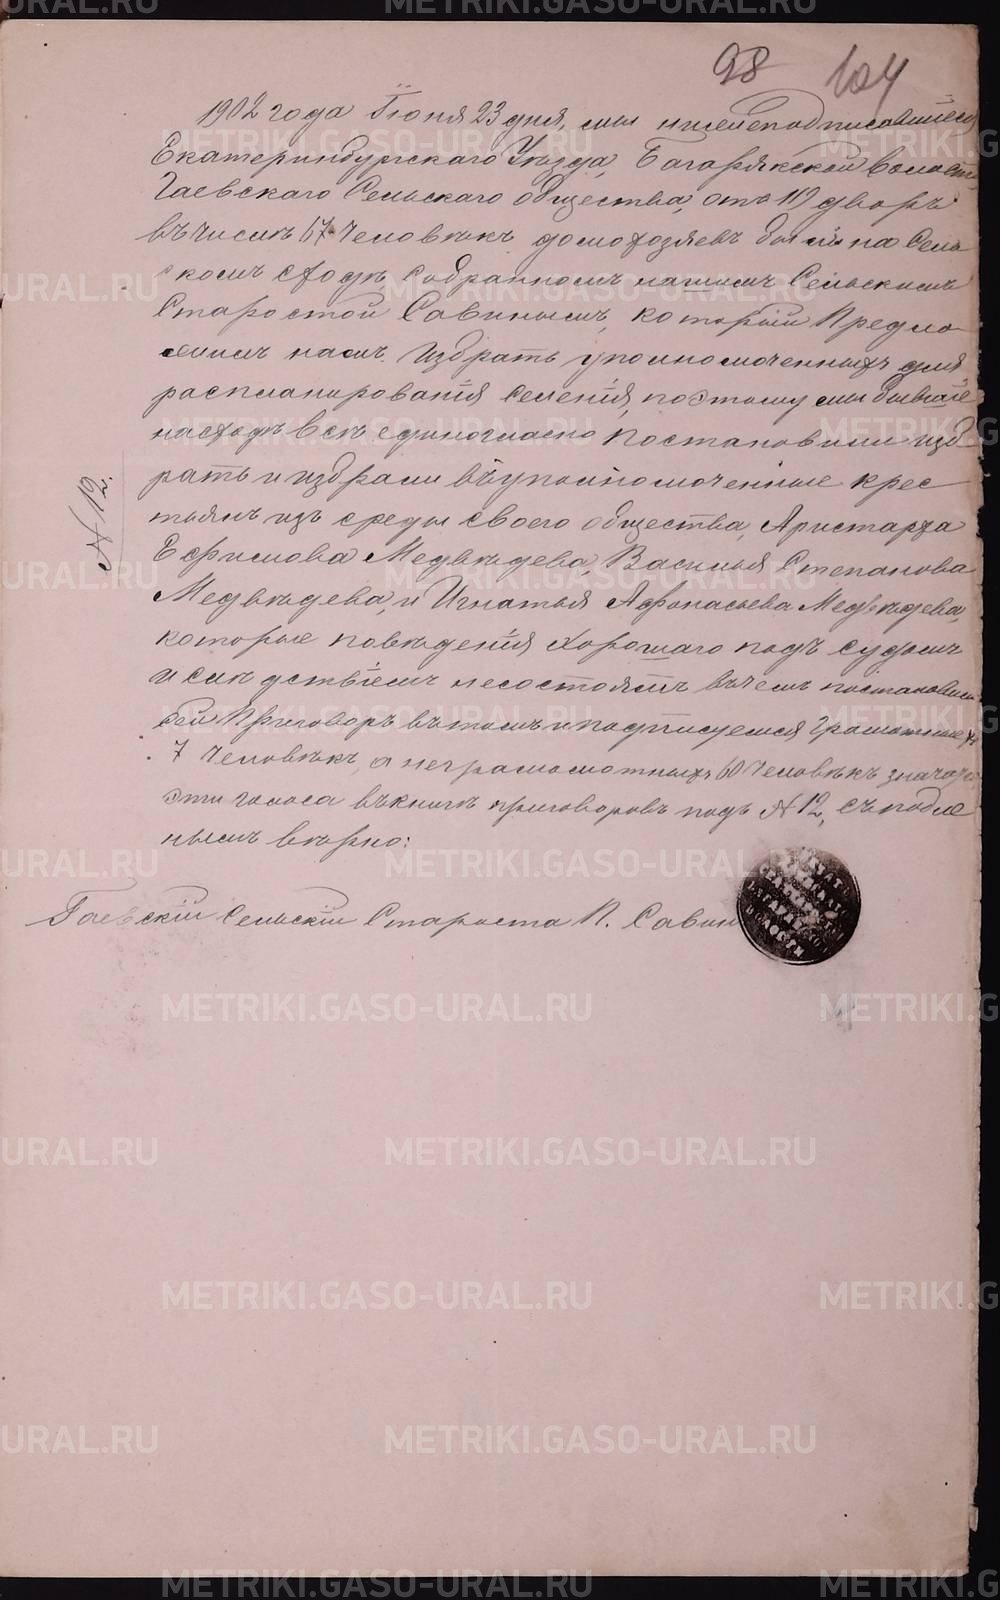 98 104
1902 года Іюня 23 дня, мы нижеподписавшіеся
Екатеринбургскаго Уѣзда, Багарякской волости
Гаевскаго Сельскаго общества, отъ 119 дворъ
въ числѣ 67 Человѣкъ домохозяевъ были на Сель
скомъ сходѣ, Собранномъ нашимъ Сельскимъ
Старостой Савинымъ, который Предло
жилъ намъ избрать уполномоченныхъ для
распланированія селенія, поэтому мы бывшіе
на сходѣ Всѣ единогласно Постановили изб
рать и избрали въ уполномоченные крес
№ 12.
тьянъ изъ среды своего общества, Аристарха
Ефимова Медвѣдева, Василья Степанова
Медвѣдева, и Игнатья Афонасьева Медвѣдева,
которые повѣденія хорошаго подъ судомъ
и слѣдствіемъ несостоятъ въ чемъ постановили
сей Приговоръ въ томъ и подписуемся Грамотные
7 Человѣкъ, а неграмомотныхъ 60 Человѣкъ
эти голоса въ книгѣ приговоровъ подъ № 12, съ подле
нымъ вѣрно:
Гаевскій Сельскій Староста П. Савин
METRIKI.GASO-URAL.RU